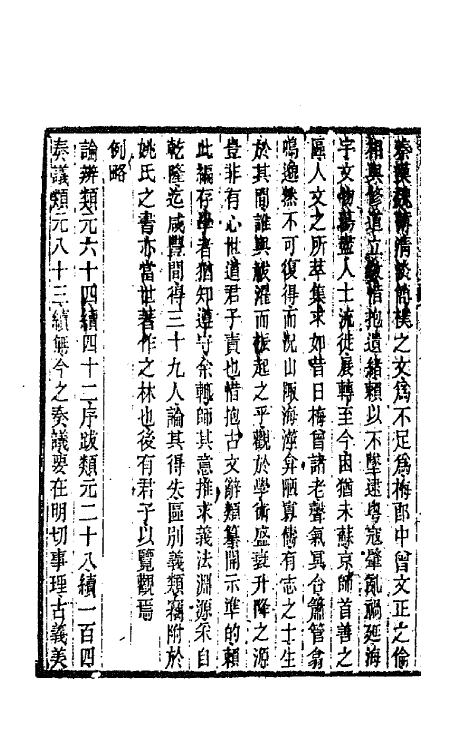 秦漢魏薄清淡簡樸之文爲不足爲梅郎中曾文正之倫
相與修道立敎惜抱遺緒賴以不墜逮粤寇肇亂禍延海
宇文物蕩盡人士流徙展轉至今困猶未蘇京師首善之
區人文之所萃集求如昔日梅曾諸老聲氣冥合簫管翕
鳴邈然不可復得而況山陬海澨弇陋寡儔有志之士生
於其間誰與祓濯而振起之乎觀於學術盛衰升降之源
豈非有心世道君子責也惜抱古文辭類纂開示準的賴
此編存學者猶知遵守余輒師其意推求義法淵源采自
乾隆迄咸豐間得三十九人論其得失區別義類竊附於
姚氏之書亦當世著作之林也後有君子以覽觀焉
例略
論辨類元六十四續四十二序跋類元二十八續一百四
奏議類元八十三續無今之奏議要在明切事理古義美